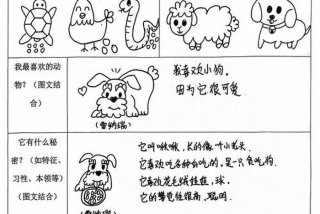 我最喜欢的动
物？（图文结
合）
我喜欢小狗。
因为它很可爱
（雪纳瑞）
它有什么秘
密？（如特征、
习性、本领等）
（图文结合）
它叫啾啾，长的像个小老头
它喜欢吃各种好吃的，是一只贪吃狗
它喜欢花毛线娃娃，球，
它的警觉性很高，聪明
（雪纳瑞）